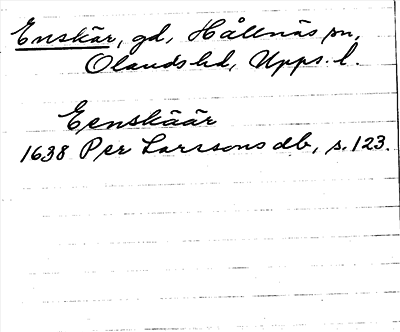 Enskär, gd, Hållnäs sn,
Olands hd, Upps. l.
Eenskäär
1638 Per Larssons db, s. 123.